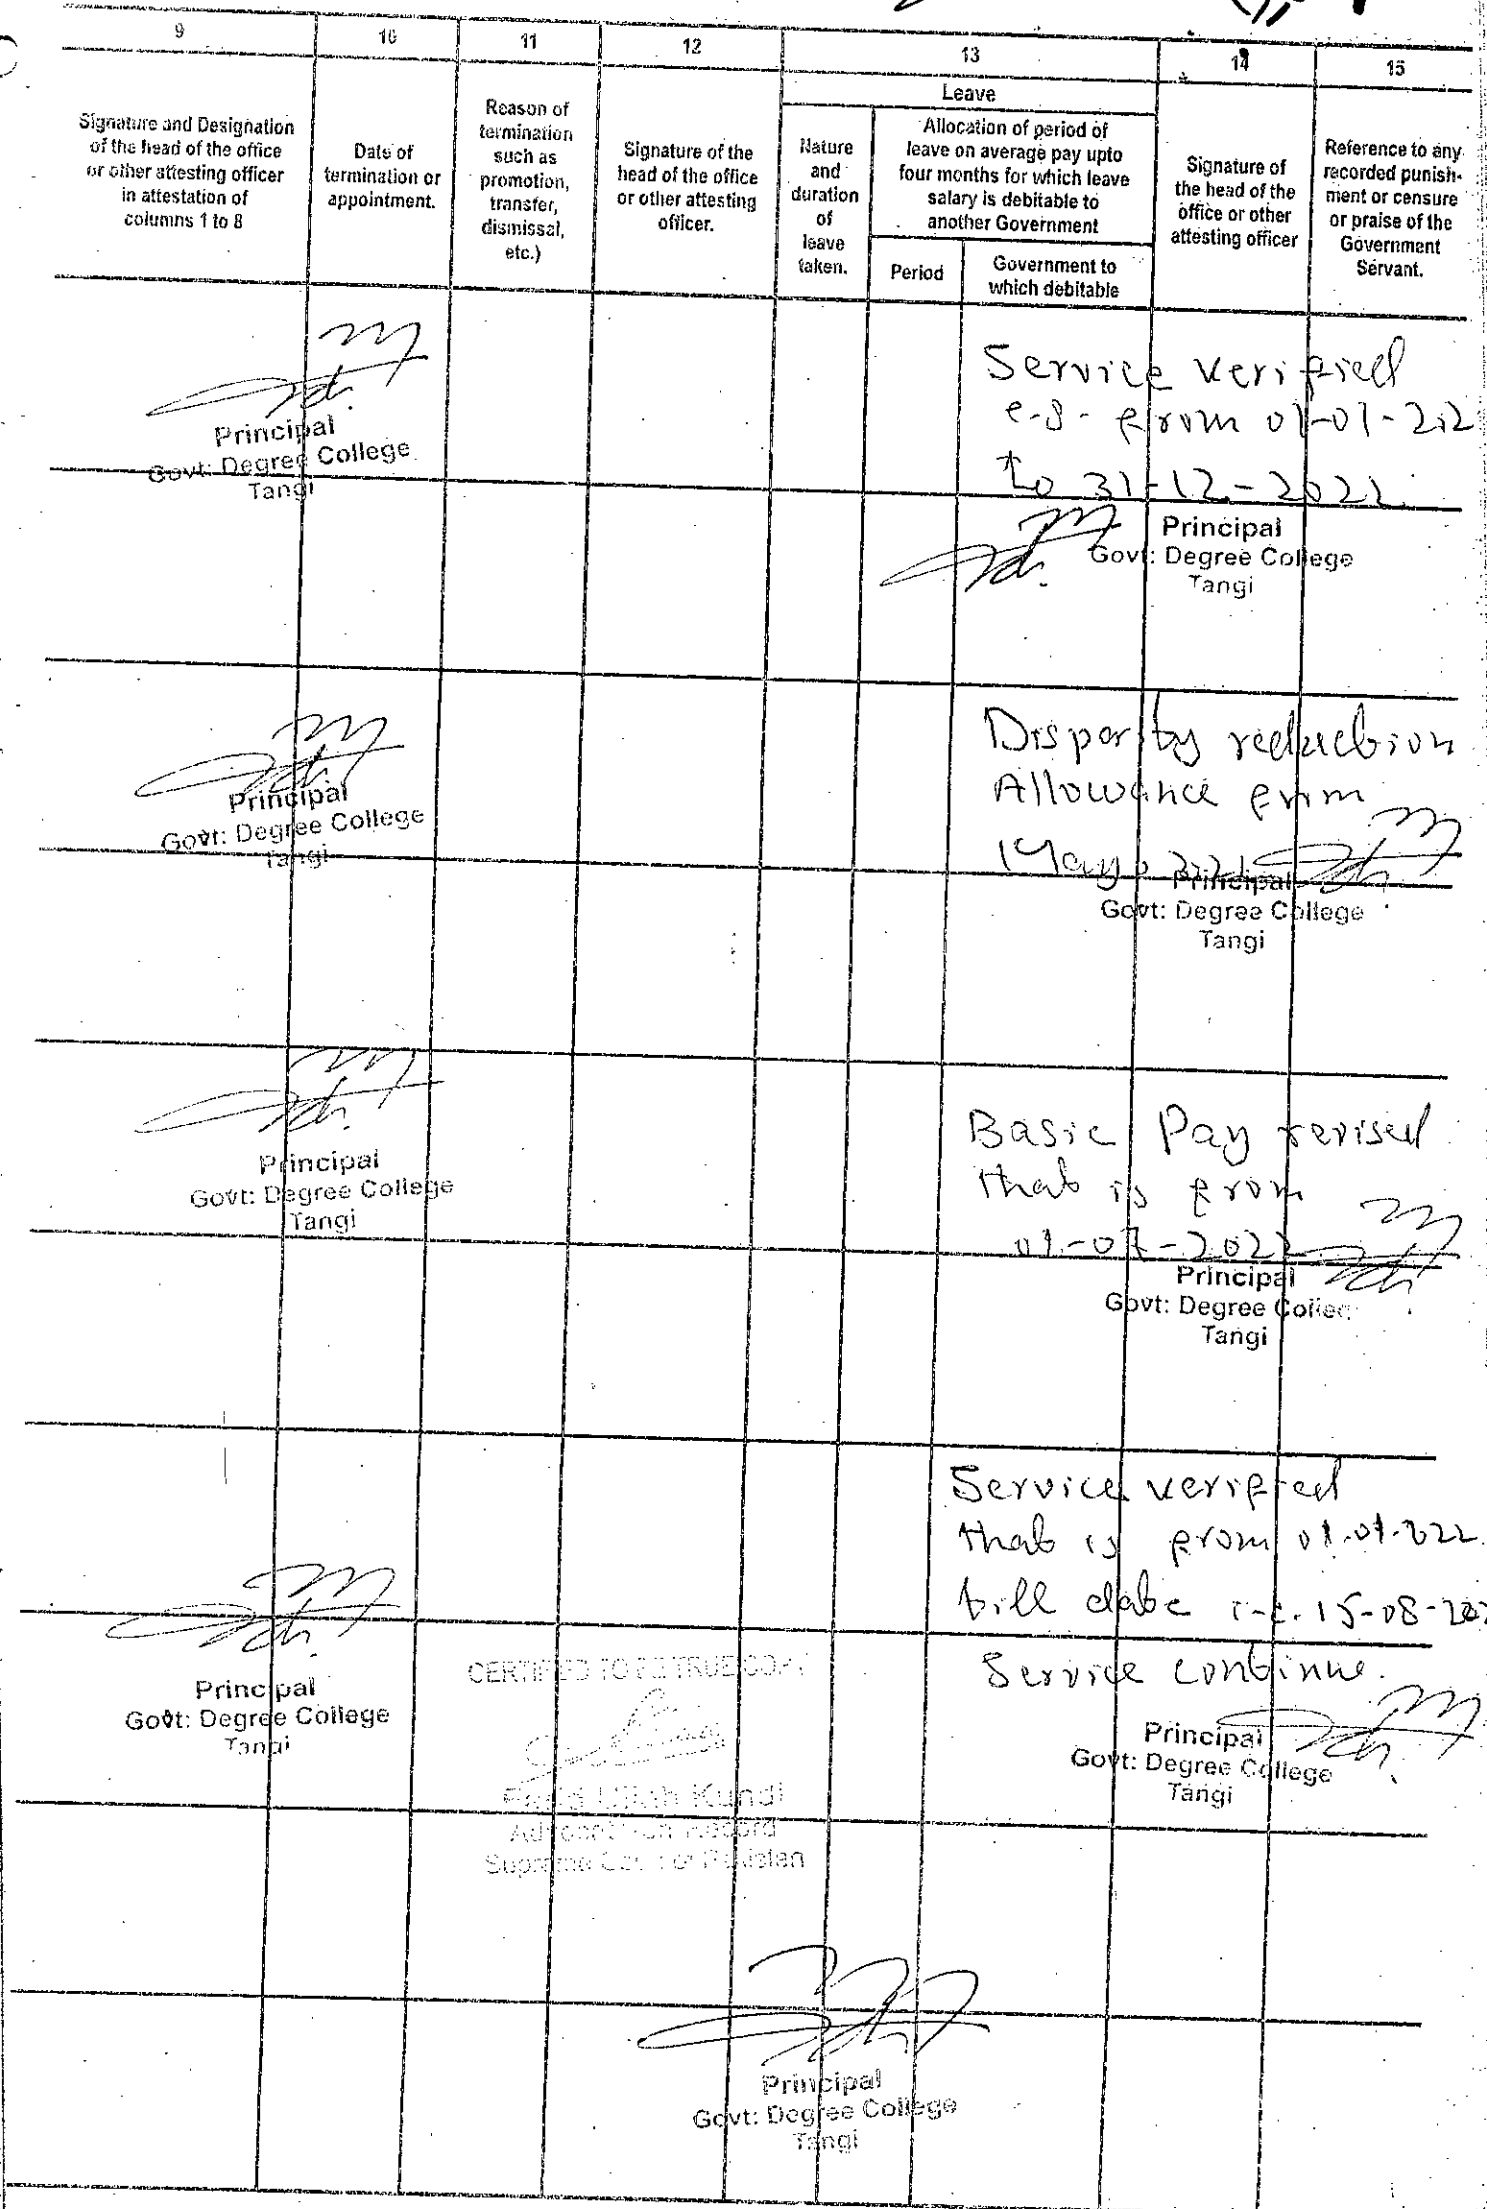 9 10 11 12 13 14 15
Leave
Signature and Designation
of the head of the office
or other attesting officer
in attestation of
columns 1 to 8
Date of
termination or
appointment.
Reason of
termination
such as
promotion,
transfer,
dismissal,
etc.)
Signature of the
head of the office
or other attesting
officer.
Nature
and
duration
of
leave
taken.
Allocation of period of
leave on average pay upto
four months for which leave
salary is debitable to
another Government
Period
Government to
which debitable
Signature of
the head of the
office or other
attesting officer
Reference to any
recorded punish-
ment or censure
or praise of the
Government
Servant.
Principal
Govt: Degree College
Tangi
Service verified
from
to 31-12-
Principal
Govt: Degree College
Tangi
Principal
Govt: Degree College
Tangi
Disparity reduction
Allowance from
Principal
Govt: Degree College
Tangi
Principal
Govt: Degree College
Tangi
Basic Pay revised
that is from
01-07-2022
Principal
Govt: Degree
Tangi
Service verified
that is from
till date i-e. 15-08-
Service continue.
Principal
Govt: Degree College
Tangi
Principal
Govt: Degree College
Tangi
CERTIFIED TO BE TRUE COPY
Ullah Kundi
Record
Supreme Court of Pakistan
Principal
Govt: Degree College
Tangi